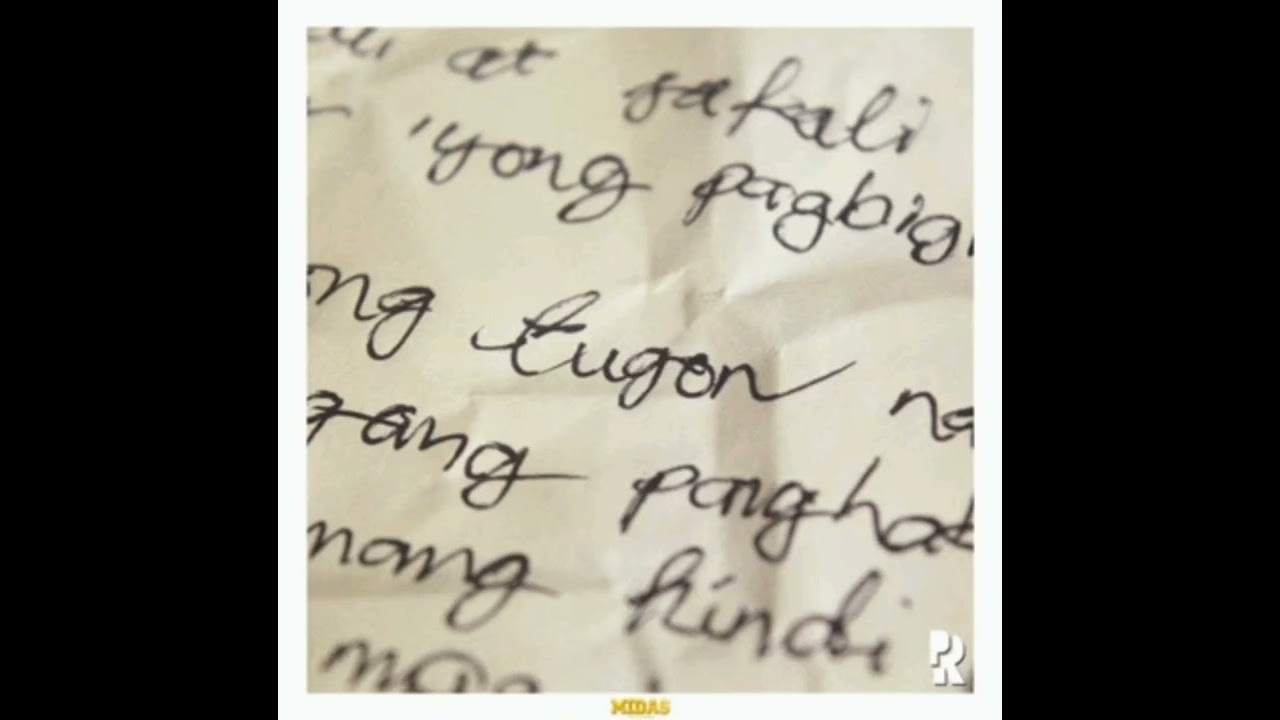 at sakali
'yong pagbigi
ng tugon na
gang panghat
nang hindi
mga
PR
MIDAS